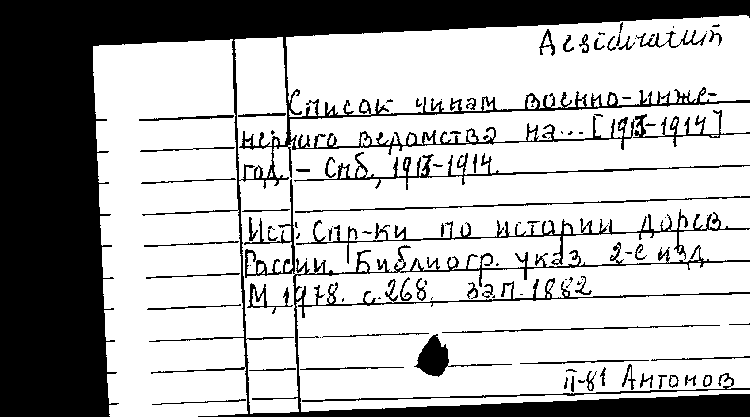 Desideratum
Список чинам военно-инже-
нерного ведомства на... [1913-1914]
год. - Спб., 1913-1914.
Ист: Спр-ки по истории дорев.
России. Библиогр. указ. 2-е изд.
М., 1978. с.268, зап.1882
II-81 Антонов